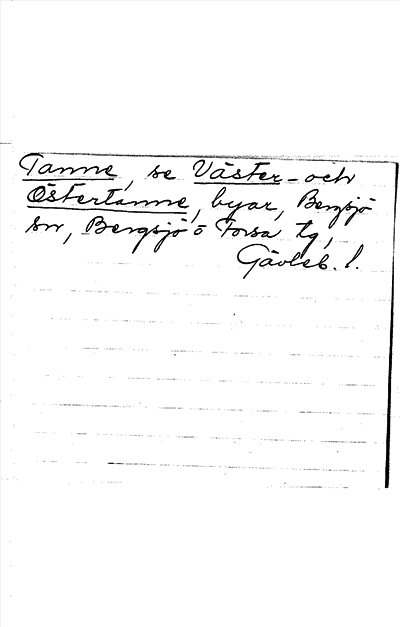 Tanne, se Väster- och
Östertanne, byar, Bergsjö
sn, Bergsjö o Forsa tg,
Gävleb. l.